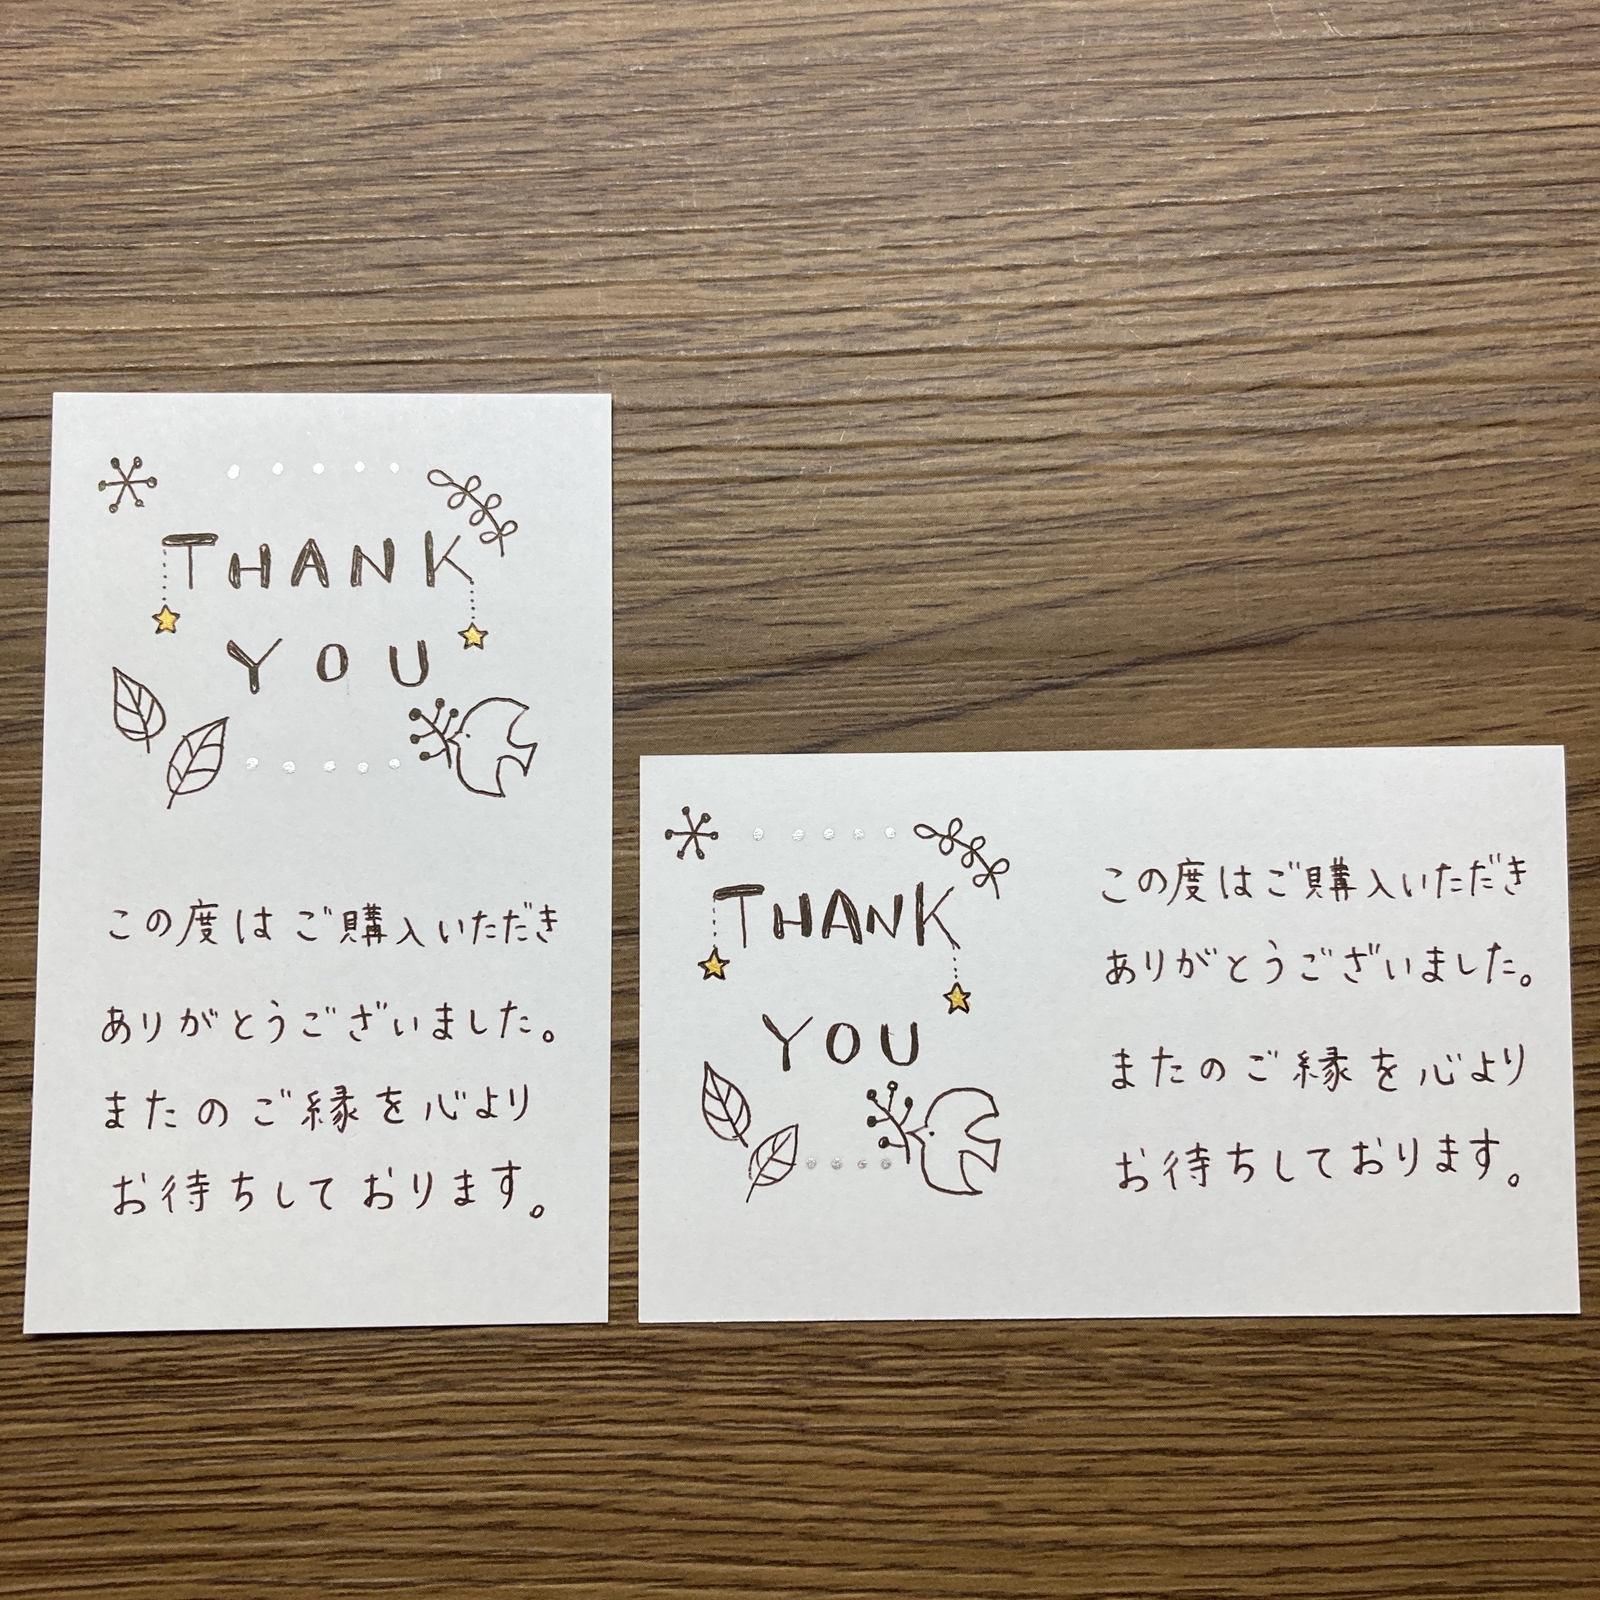 THANK
YOU
この度はご購入いただき
ありがとうございました。
またのご縁を心より
お待ちしております。
THANK
YOU
この度はご購入いただき
ありがとうございました。
またのご縁を心より
お待ちしております。